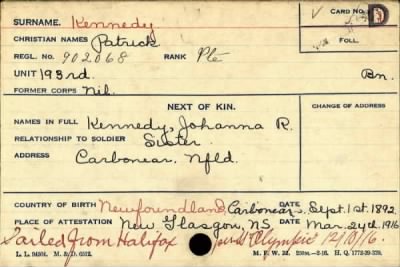 SURNAME. Kennedy CARD NO. D
CHRISTIAN NAMES Patrick FOLL.
REGL. NO. 902068 RANK Pte
UNIT 193rd. Bn.
FORMER CORPS Nil.
NEXT OF KIN. CHANGE OF ADDRESS
NAMES IN FULL Kennedy, Johanna R.
RELATIONSHIP TO SOLDIER Sister
ADDRESS Carbonear, Nfld.
COUNTRY OF BIRTH Newfoundland, Carbonear DATE Sept. 1st. 1892
PLACE OF ATTESTATION New Glasgow, NS DATE Mar. 24th 1916
Sailed from Halifax per SS Olympic 12/10/16.
M. F. W. 22.